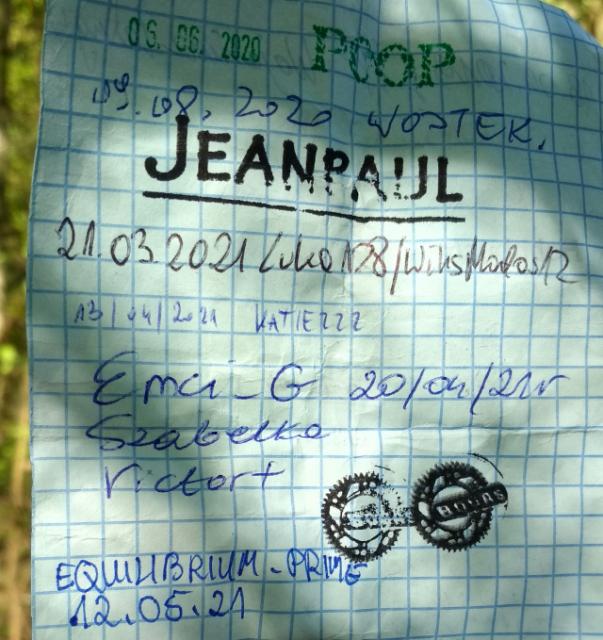 06. 06. 2020 POOP
09.08.2020 WOJTEK.
JEANPAUL
21.03.2021
13/04/2021 KATIEZZZ
Emci_G 20/04/21r
Szabelka
Victort
EQUILIBRIUM-PRIME
12.05.21